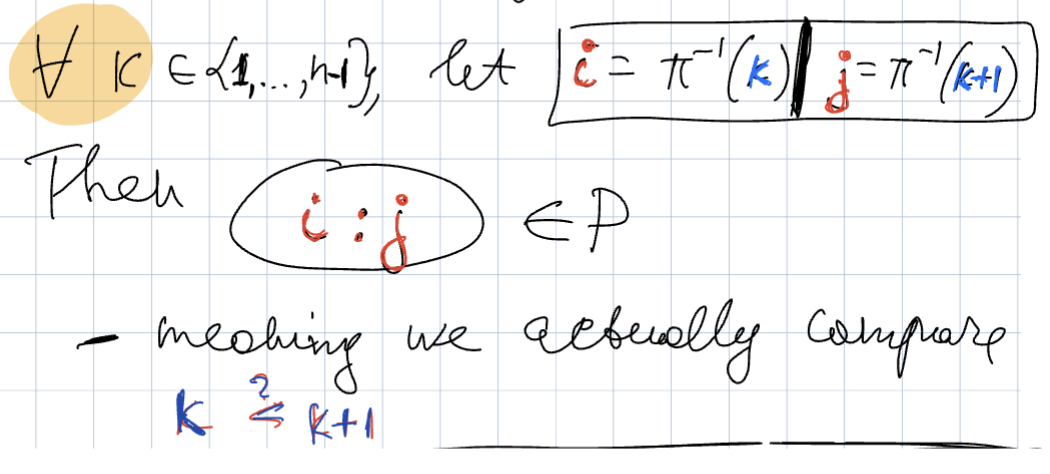 ∀ k ∈ {1,...,n-1}, let i = π⁻¹(k) | j = π⁻¹(k+1)
Then i : j ∈ P
- meaning we actually compare
k ≤? k+1